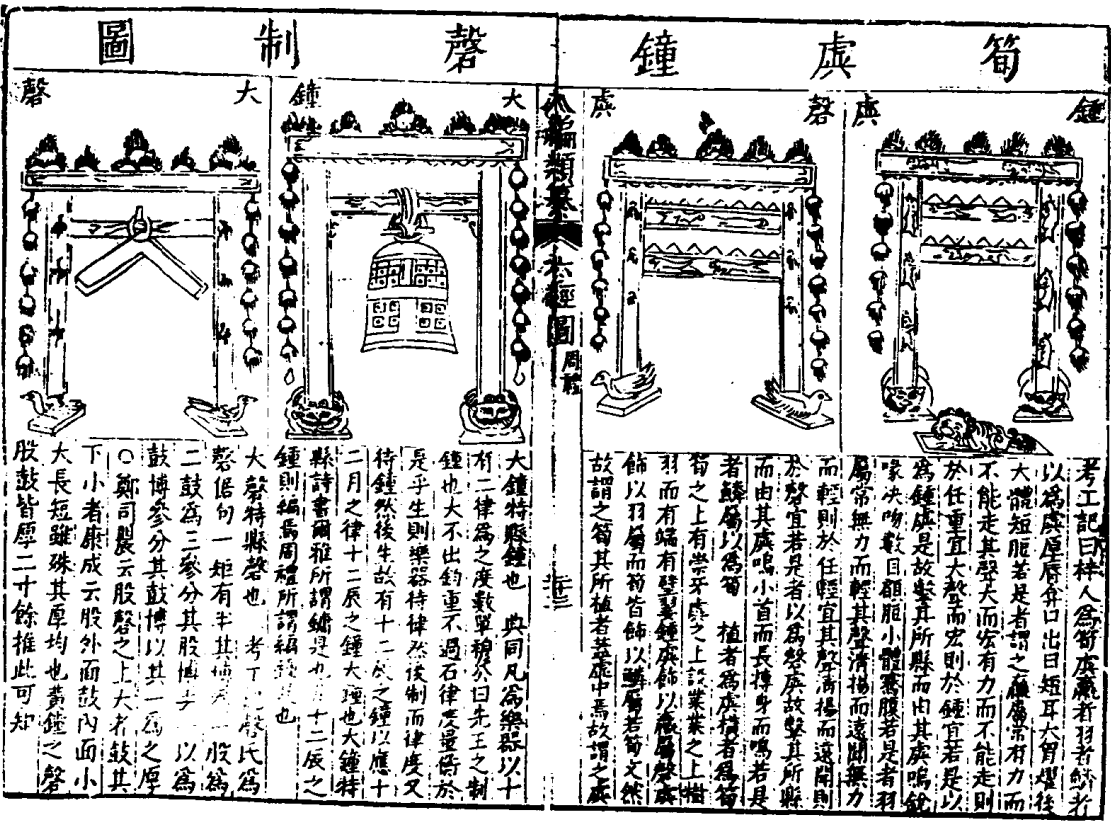 筍虡鐘磬制圖
鐘虡
考工記曰梓人爲筍虡臝者羽者鱗者
以爲虡厚脣弇口出目短耳大胷燿後
大體短脰若是者謂之臝屬常有力而
不能走其聲大而宏有力而不能走則
於任重宜大聲而宏則於鐘宜若是以
爲鐘虡是故擊其所縣而由其虡鳴銳
喙決吻數目顅脰小體騫腹若是者羽
屬常無力而輕其聲清揚而遠聞無力
磬虡
而輕則於任輕宜其聲清揚而遠聞則
於磬宜若是者以爲磬虡故擊其所縣
而由其虡鳴小首而長摶身而鳴若是
者鱗屬以爲筍 植者爲虡橫者爲筍
筍之上有崇牙虡之上設業業之上樹
羽而有端有璧翣鐘虡飾以臝屬磬虡
飾以羽屬而筍皆飾以鱗屬若筍文然
故謂之筍其所植者英虡中焉故謂之虡
八編類纂 六經圖 周禮
大鐘
大鐘特縣鐘也 典同凡爲樂器以十
有二律爲之度數單穆公曰先王之制
鐘也大不出鈞重不過石律度量衡於
是乎生則樂器待律然後制而律度又
待鐘然後生故有十二辰之鐘以應十
二月之律十二辰之鐘大鐘也大鐘特
縣詩書爾雅所謂鏞是也 十二辰之
鐘則編焉周禮所謂編鐘是也
大磬
大磬特縣磬也 考工記磬氏爲
磬倨句一矩有半其博爲一股爲
二鼓爲三參分其股博去一以爲
鼓博參分其鼓博以其一爲之厚
○鄭司農云股磬之上大者鼓其
下小者康成云股外面鼓內面小
大長短雖殊其厚均也黃鐘之磬
股鼓皆厚二寸餘推此可知